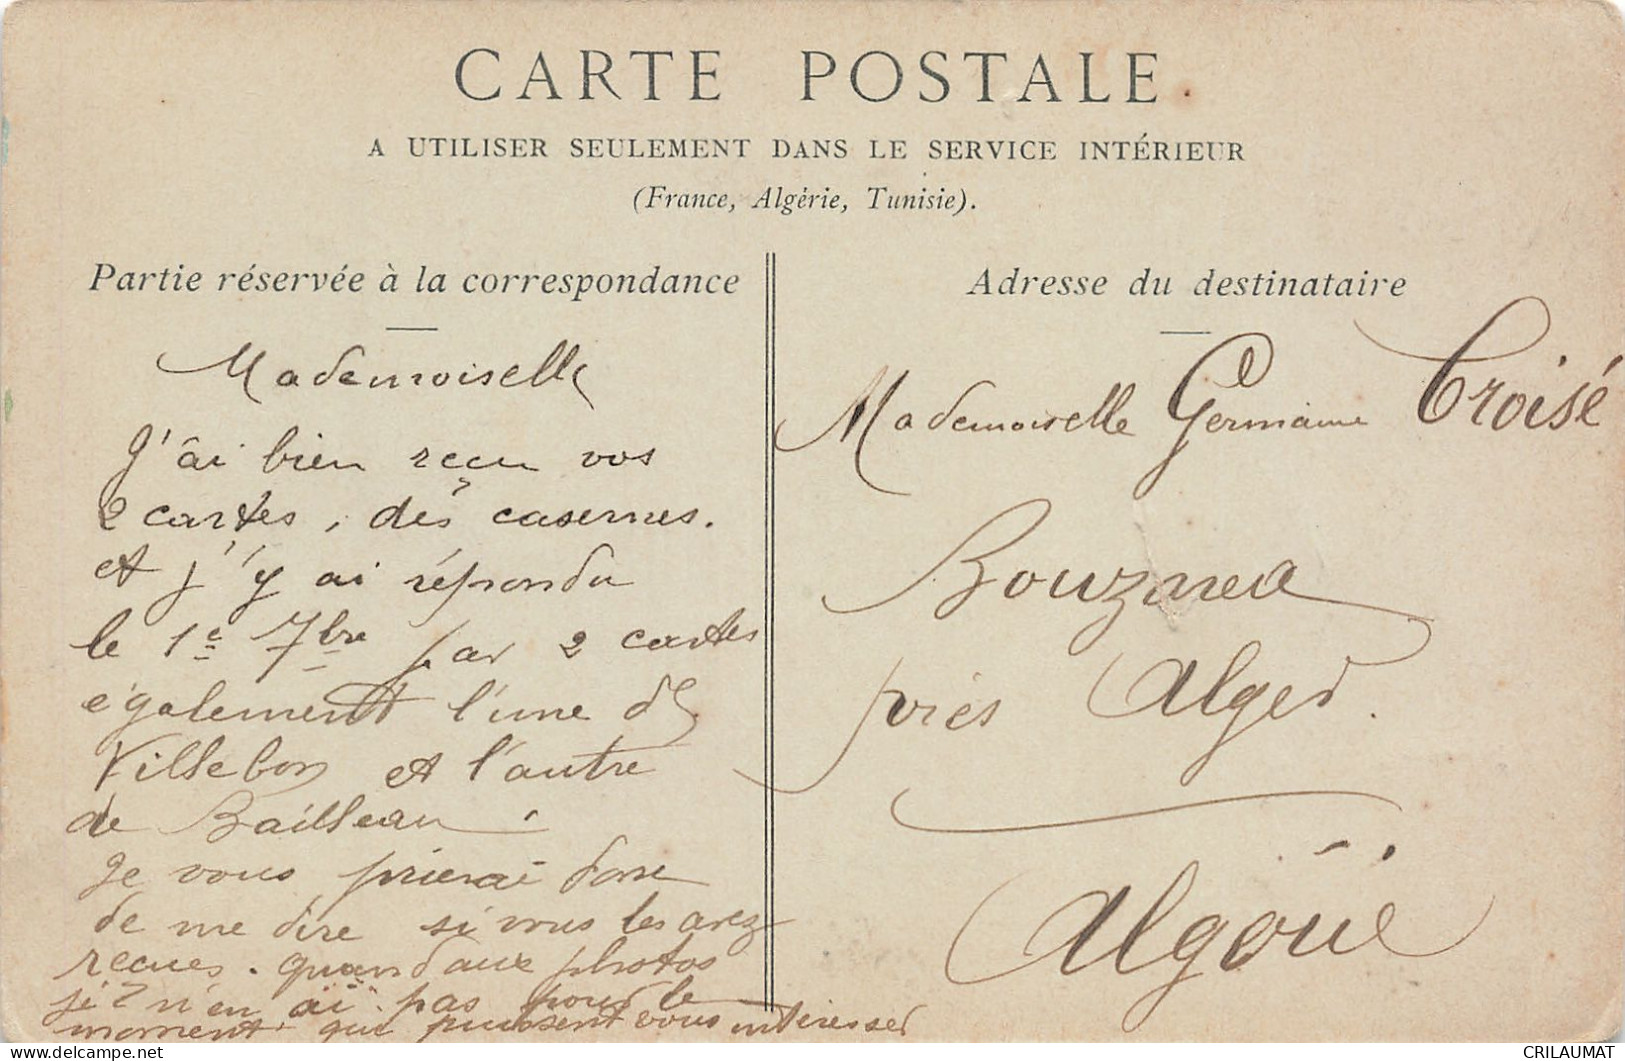 CARTE POSTALE.
A UTILISER SEULEMENT DANS LE SERVICE INTÉRIEUR
(France, Algérie, Tunisie).
Partie réservée à la correspondance
Mademoiselle
J'ai bien reçu vos
2 cartes, des casernes.
et j'y ai répondu
le 1e 7bre par 2 cartes
également l'une de
Villebon et l'autre
de Bailleau.
Je vous prierai donc
de me dire si vous les avez
recues. quand aux photos
je n'en ai pas pour le
moment qui puissent vous intéresser
Adresse du destinataire
Mademoiselle Germaine Croisé
Bouzarea
près Alger.
Algérie
CRILAUMAT